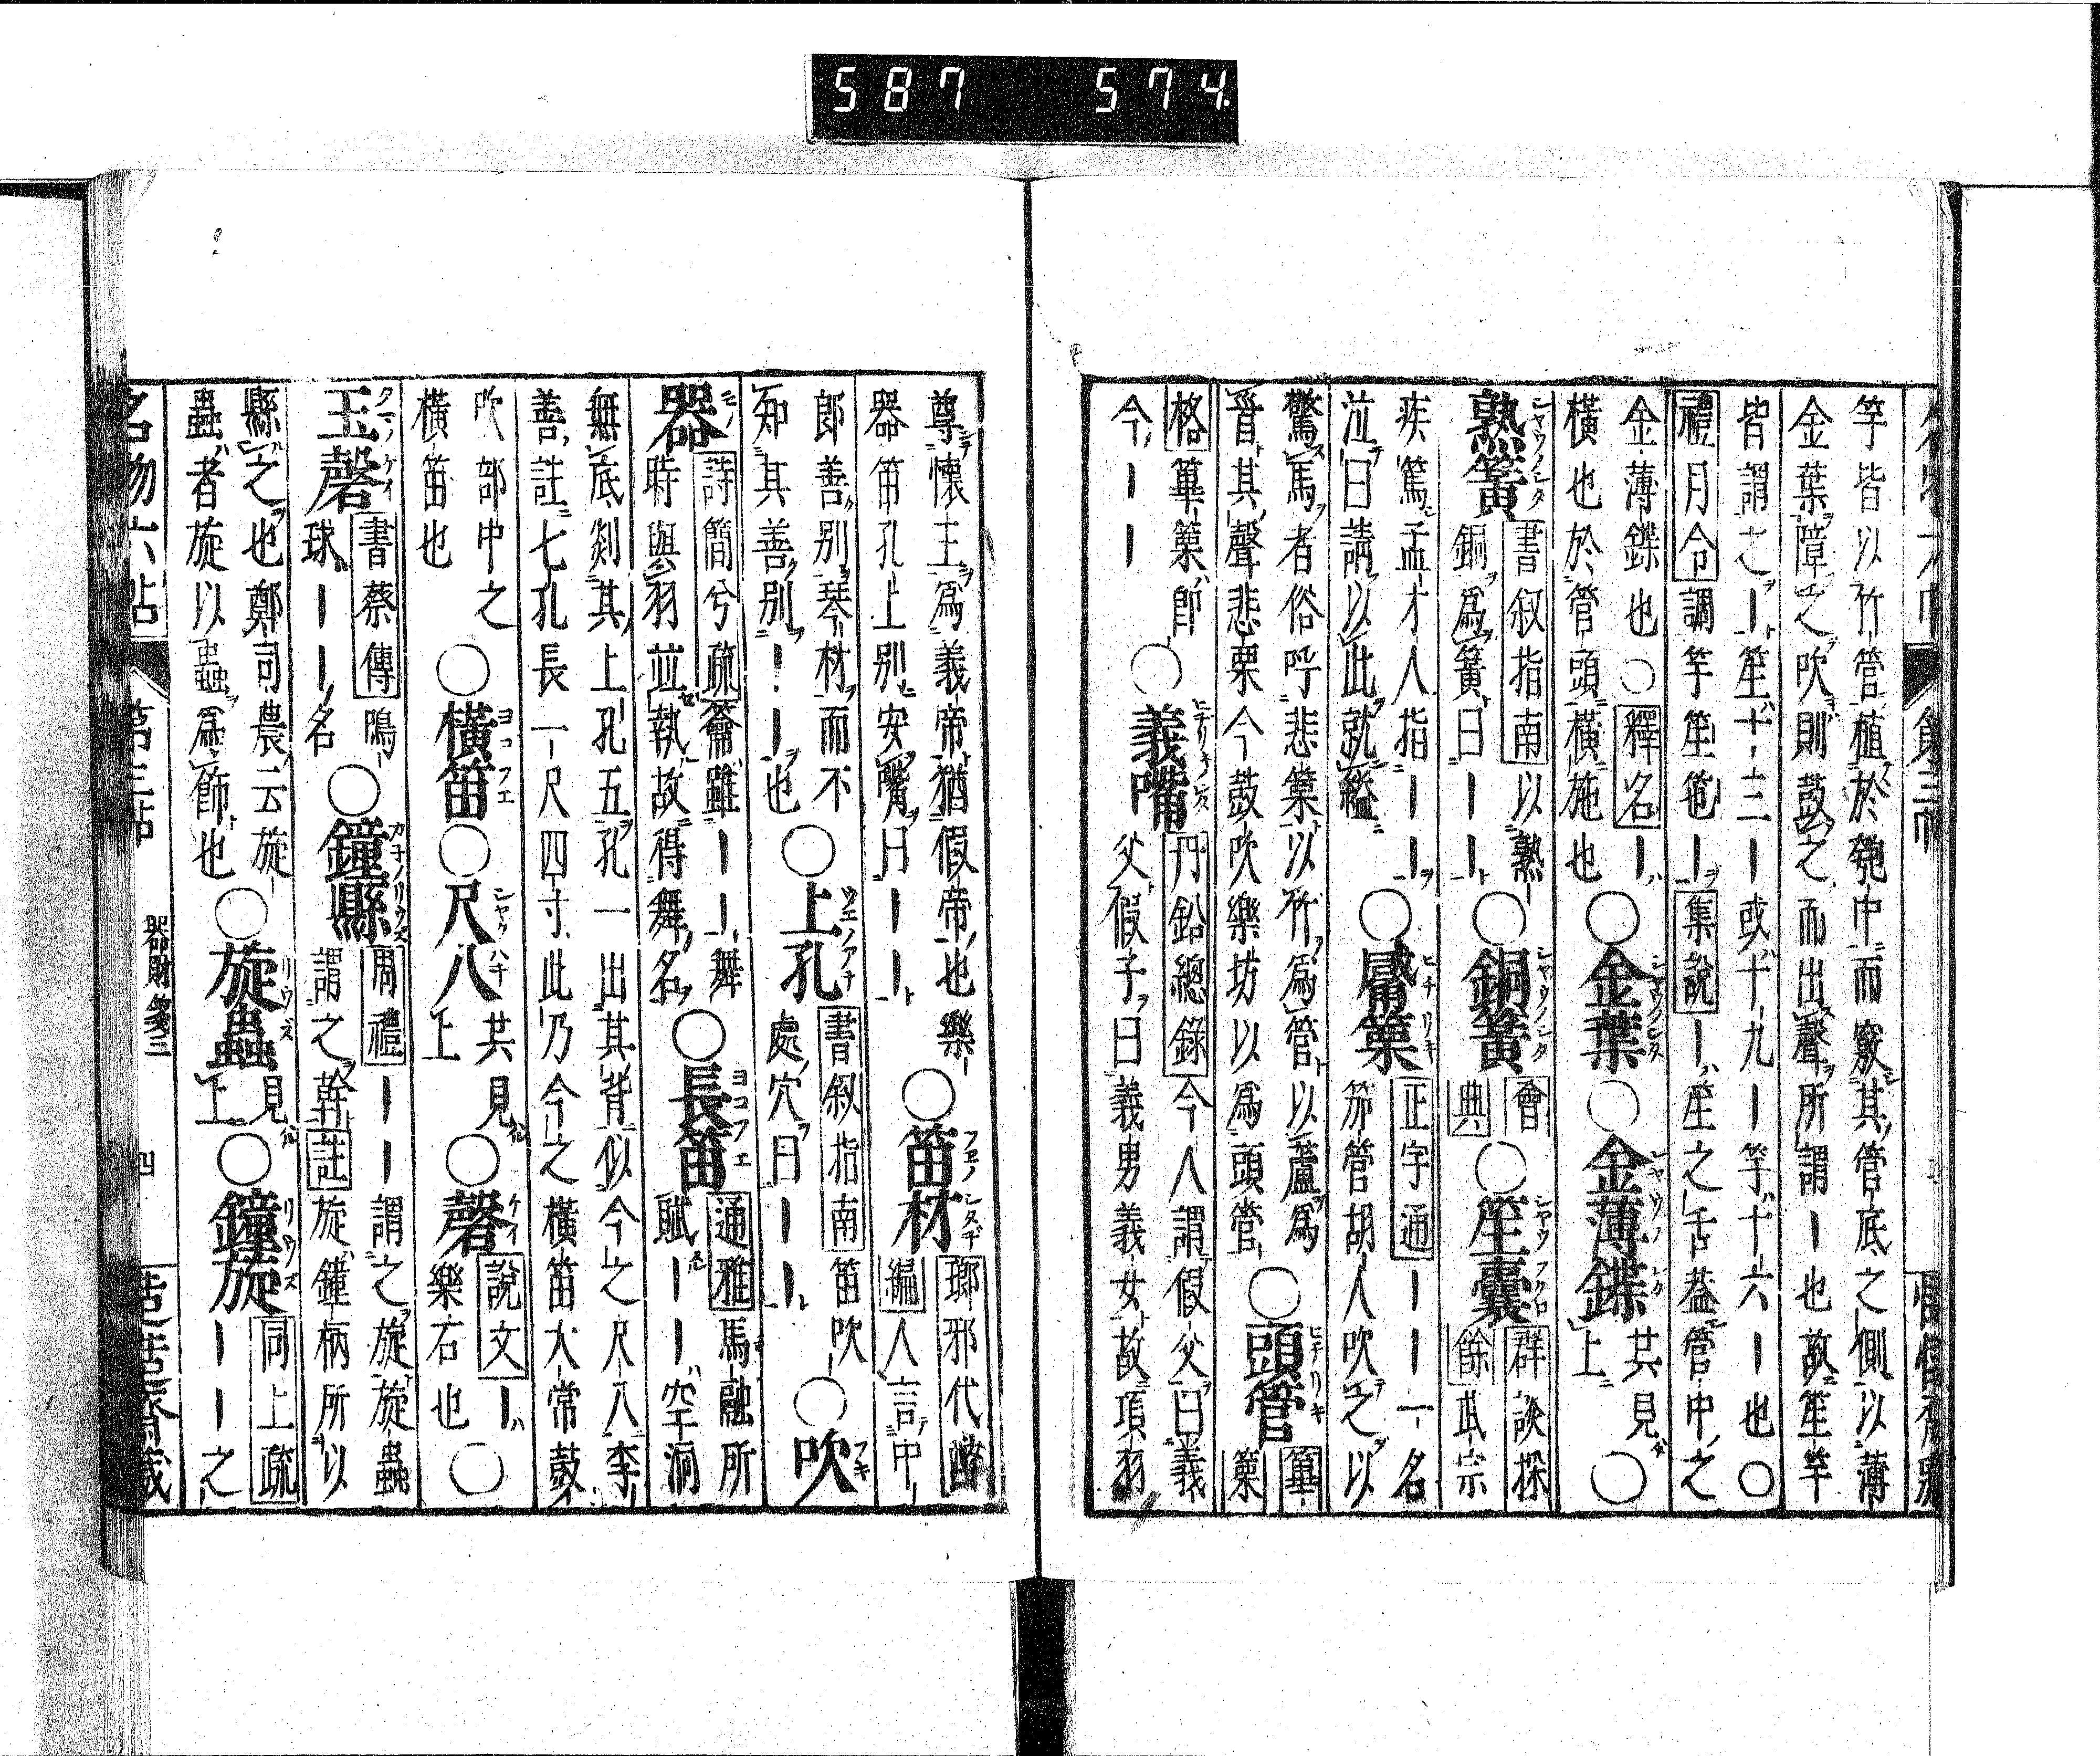 竽皆以竹管植於匏中而竅其管底之側以薄
金葉障之吹則鼓之而出聲所謂丨也故笙竽
皆謂之丨笙十三丨或十九丨竽十六丨也〇
禮月令調竽笙竾丨集說丨笙之舌葢管中之
金薄鐷也〇釋名丨
橫也於管頭橫施也
〇金葉〇金薄鐷共見上〇
熟簧書叙指南以熟
銅爲簧曰丨丨
〇銅簧會典〇笙囊群談採
餘武宗
疾篤孟才人指丨丨
泣曰請以此就縊
〇觱篥正字通丨丨一名
笳管胡人吹之以
驚馬者俗呼悲篥以竹爲管以蘆爲
首其聲悲栗今鼓吹樂坊以爲頭管
〇頭管篳
篥
格篳篥卽
今丨丨
〇義嘴丹鉛總錄今人謂假父曰義
父假子曰義男義女故項羽
尊懷王爲義帝猶假帝也樂
器笛孔上別安嘴曰丨丨
〇笛材瑯邪代醉
編人言中
郎善別琴材而不
知其善別丨丨也
〇上孔書叙指南笛吹
處穴曰丨丨
〇吹
器詩簡兮疏籥雖丨丨舞
時與羽並執故得舞名
〇長笛通雅馬融所
賦丨丨空洞
無底剡其上孔五孔一出其背似今之尺八李
善註七孔長一尺四寸此乃今之橫笛太常鼓
吹部中之
橫笛也
〇橫笛〇尺八共見上〇磬說文丨
樂石也
〇
玉磬書蔡傳鳴
球丨丨名
〇鐘縣周禮丨丨謂之旋旋蟲
謂之幹註旋鐘柄所以
縣之也鄭司農云旋
蟲者旋以蟲爲飾也
〇旋蟲見上〇鐘旋同上疏
丨丨之
名物六帖 第三帖 器財箋三 四
587 574.